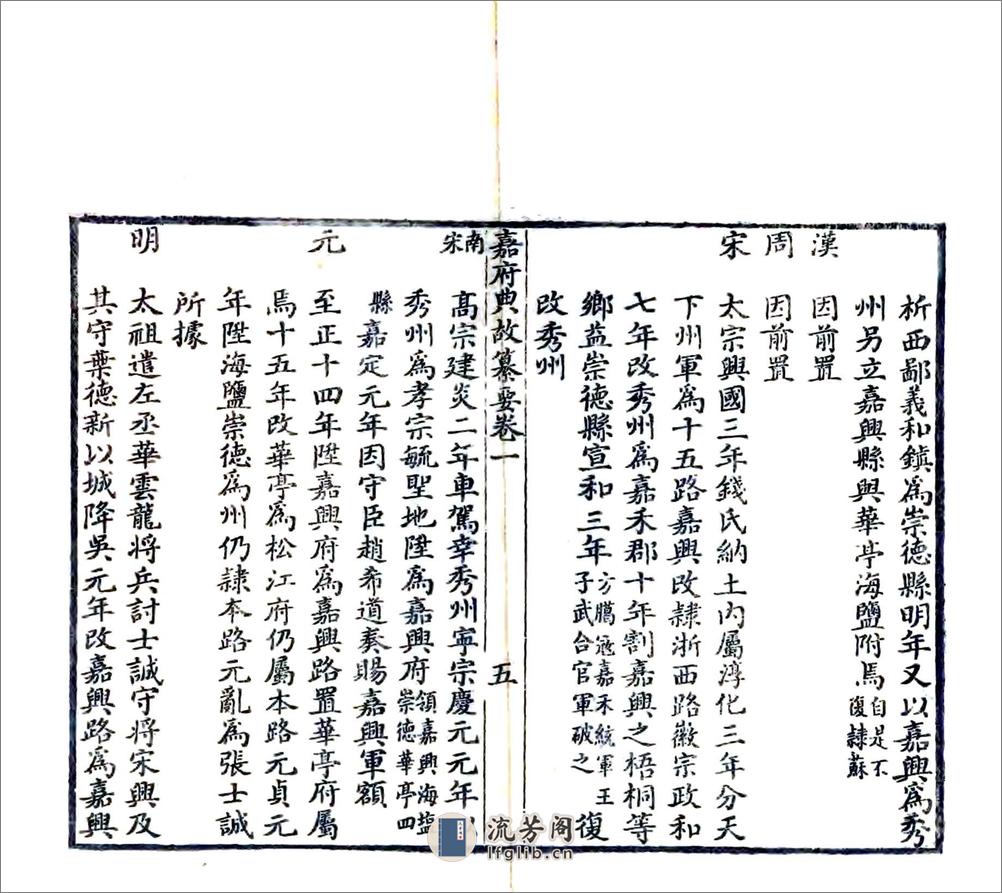 析西鄙義和鎮爲崇德縣明年又以嘉興爲秀
州另立嘉興縣與華亭海鹽附焉自是不復隸蘇
漢 因前置
周 因前置
宋 太宗興國三年錢氏納土內屬淳化三年分天
下州軍爲十五路嘉興改隸浙西路徽宗政和
七年改秀州爲嘉禾郡十年割嘉興之梧桐等
鄉益崇德縣宣和三年方臘寇嘉禾統軍王子武台官軍破之復
改秀州
嘉府典故纂要卷一 五
南宋 高宗建炎二年車駕幸秀州寧宗慶元元年
秀州爲孝宗毓聖地陞爲嘉興府領嘉興海塩崇德華亭四
縣嘉定元年因守臣趙希道奏賜嘉興軍額
元 至正十四年陞嘉興府爲嘉興路置華亭府屬
焉十五年改華亭爲松江府仍屬本路元貞元
年陞海鹽崇德爲州仍隸本路元亂爲張士誠
所據
明 太祖遣左丞華雲龍將兵討士誠守將宋興及
其守葉德新以城降吳元年改嘉興路爲嘉興
流芳阁
lfglib.cn